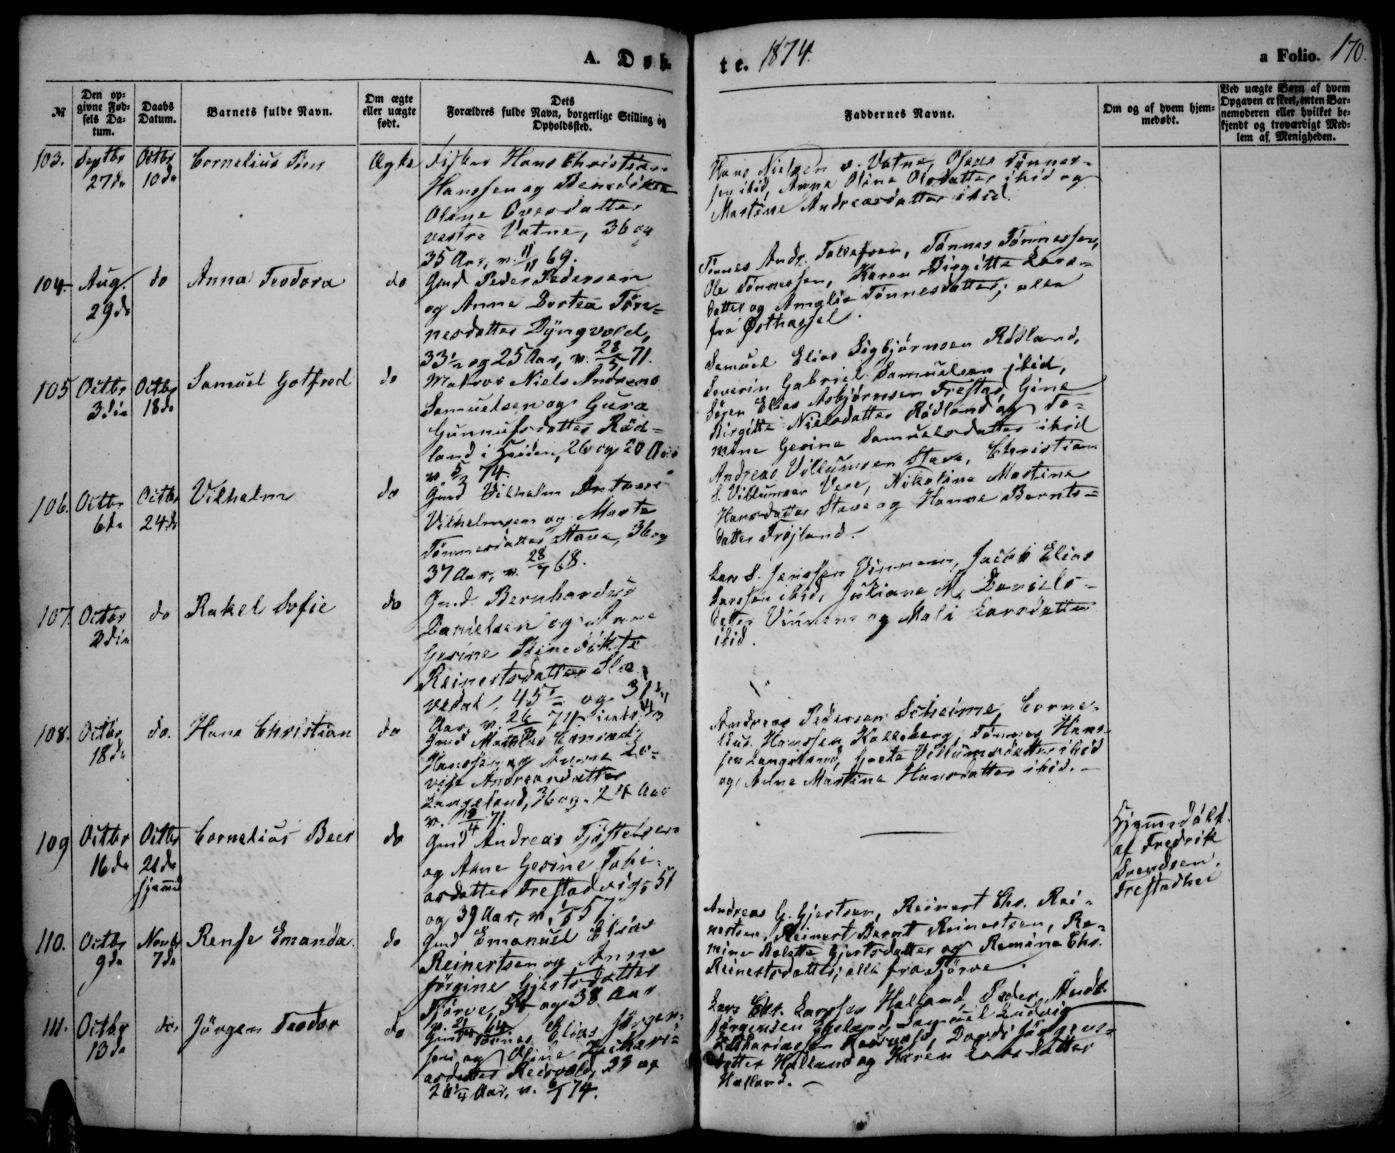 A. Døb-
te. 1874.
a Folio. 170.
№
Den op-
givne Fød-
sels Da-
tum.
Daabs
Datum.
Barnets fulde Navn.
Om ægte
eller uægte
født.
Dets
Forældres fulde Navn, borgerlige Stilling og
Opholdssted.
Faddernes Navne.
Om og af hvem hjem-
medøbt.
Ved uægte Børn af hvem
Opgaven er skeet, enten Bar-
nemoderen eller hvilket be-
kjendt og troværdigt Med-
lem af Menigheden.
103.
Septbr
27de
Octbr
10de
Cornelius
Ægte
Fisker Hans Christian
Hanssen og Bendikte
Oline Ovesdatter
vestre Vatne, 36 og
35 Aar, v. 69.
Hans Nielsen v. Vatne, Olaus Tønnes-
sen ibid, Anna Oline Olsdatter ibid og
Martine Andreasdatter ibid.
104
Aug.
29de
do
Anna Teodora
do
Gmd Peder Pedersen
og Anne Dortea Tøn-
nesdatter Dyngvold,
33½ og 25 Aar, v. 28/5 71.
Tønnes Andr. Tollefsen, Tønnes Tønnessen,
Ole Tønnessen, Karen Birgitte Lars-
datter og Amalie Tønnesdatter; alle
fra Østhassel.
105
Octbr
3die
Octbr
18de
Samuel Gotfred
do
Matros Niels Andreas
Samuelsen og Gura
Gunnufsdatter Rød-
land i Heiden, 26 og 20 Aar
v. 5/3 74.
Samuel Elias Sigbjørnsen Rødland,
Severin Gabriel Samuelsen ibid,
Søren Elias Asbjørnsen Trestad, Gine
Birgitte Nielsdatter Rødland og To-
mine Gesine Samuelsdatter ibid
106.
Octbr
6de
Octbr
24de
Vilhelm
do
Gmd Vilhelm Antoni
Vilhelmsen og Marte
Tønnesdatter Stave, 36 og
37 Aar, v. 28/7 68.
Andreas Villumsen Stave, Christian
S. Villumsen Vere, Nikoline Martine
Hansdatter Stave og Hanne Bernts-
datter Trøjland.
107
Octbr
2den
do
Rakel Sofie
do
Gmd Bernhardus
Danielsen og Anne
Gesine Benedikte
Reinertsdatter Slæ-
vedal, 45 og 31
Aar, v. 26/ 71
Lars S. Jenssen Vinnem, Jacob Elias
Larssen ibid, Juliane M. Daniels-
datter Vinnem og Mali Larsdatter
ibid.
108.
Octbr
18de
do.
Hans Christian
do
Gmd Mathias Conrad
Hanssen og Anne Lo-
vise Andreasdatter
Langeland, 36 og 24 Aar
v. 12/4 71.
Andreas Pedersen Scheime, Corne-
lius Hanssen Kalleberg, Tønnes Hans-
sen Langeland, Grete Villumsdatter ibid
og Anne Martine Hansdatter ibid.
109
Octbr
16de
Octbr
21de
hjemmed
Cornelius Beer
do
Gmd Andreas Tjøstelsen
og Anne Gesine Tobi-
asdatter Trestadvig, 51
og 39 Aar, v. 57.
Hjemmedøbt
af Fredrik
Svendsen,
Trestadhei
110.
Octbr
9de
Novbr
7de
Rense Emanda
do
Gmd Emanuel Elias
Reinertsen og Anne
Jørgine Gjertsdatter
Kjørve, 34 og 38 Aar
v. 64
Andreas G. Gjertsen, Reinert Chr. Rei-
nertsen, Reinert Bernt Reinertsen, Ra-
mine Bolette Gjertsdatter og Ramine Chr.
Reinertsdatter; alle fra Kjørve.
111.
Octbr
13de
do
Jørgen Teodor
do
Gmd Tønnes Elias Jørgen-
sen og Oline Zachari-
asdatter Reisvold, 23 og
26¼ Aar, v. 6/1 74.
Lars Chr. Larssen Halland, Peder Andr.
Jørgensen Eigeland, Samuel Ludvig
Zachariassen Reisvold, Dordi Jørgens-
datter Halland og Karen Larsdatter
Halland.